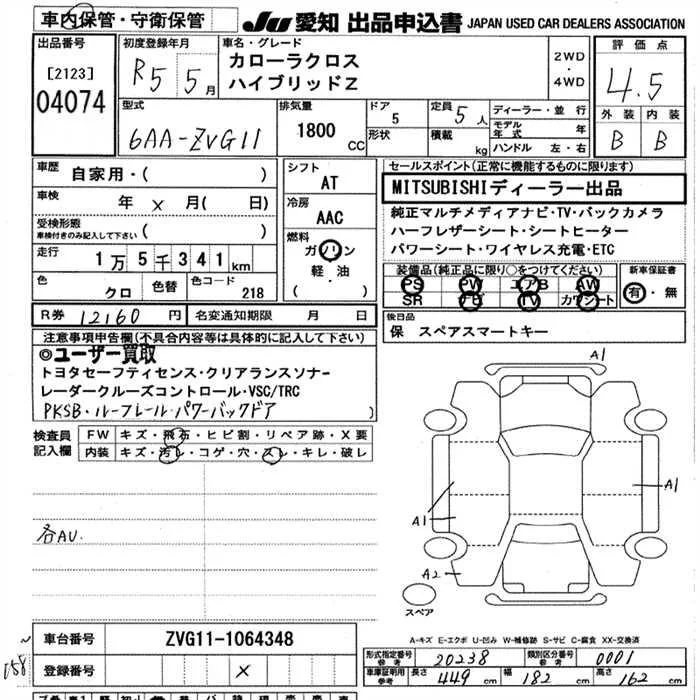 車内保管・守衛保管
JU 愛知 出品申込書 JAPAN USED CAR DEALERS ASSOCIATION
出品番号
[2123]
04074
初度登録年月
R5 5月
車名・グレード
カローラクロス
ハイブリッドZ
2WD
・
4WD
評価点
4.5
外装 内装
B B
型式
6AA-ZVG11
排気量
1800 CC
ドア
5
形状
定員
5人
積載
kg
ディーラー・並行
モデル年式 年
ハンドル 左・右
車歴
自家用・( )
車検
年 × 月( 日)
受検形態
車検付きのみ記入して下さい ( )
走行
1万5千341km
色
クロ
色替
色コード
218
シフト
AT
冷房
AAC
燃料
ガソリン
軽・油
( )
セールスポイント(正常に機能するものに限ります)
MITSUBISHIディーラー出品
純正マルチメディアナビ・TV・バックカメラ
ハーフレザーシート・シートヒーター
パワーシート・ワイヤレス充電・ETC
装備品(純正品に限り○をつけてください)
PS PW エアB AW
SR ナビ TV カワシート
新車保証書
有・無
R券 12160円 名変通知期限 月 日
後日品
保 スペアスマートキー
注意事項申告欄(不具合内容等は具体的に記入して下さい)
◎ユーザー買取
トヨタセーフティセンス・クリアランスソナー
レーダークルーズコントロール・VSC/TRC
PKSB・ルーフレール・パワーバックドア )
検査員記入欄
FW キズ・飛石・ヒビ割・リペア跡・X要
内装 キズ・汚レ・コゲ・穴・スレ・キレ・破レ
各AU.
A1
A1
A1
A2
スペア
A-キズ E-エクボ U-凹み W-補修跡 S-サビ C-腐食 XX-交換済
車台番号 ZVG11-1064348
登録番号 ×
058
形式指定番号 参考 20238 類別区分番号 参考 0001
車庫証明用 参考 長さ 449cm 幅 182cm 高さ 162cm